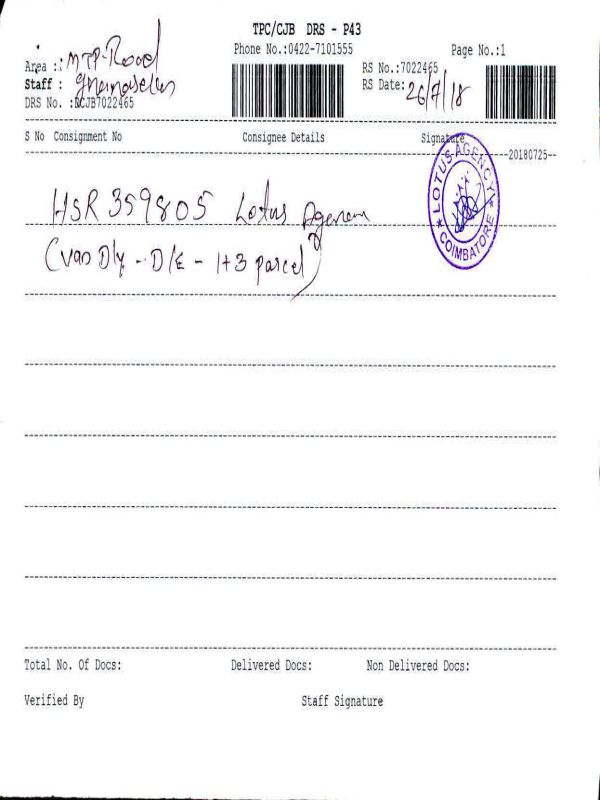 TPC/CJB DRS - P43
Phone No.:0422-7101555
Page No.:1
Area : : MTP-Road
Staff : Gnanaselan
DRS No. :DCJB7022465
RS No.:7022465
RS Date: 26/7/18
S No Consignment No Consignee Details Signature
20180725
HSR 359805 Lotus
(van Dly - D/E - 1+3 parcel)
★ LOTUS AGENCY ★
COIMBATORE
Total No. Of Docs: Delivered Docs: Non Delivered Docs:
Verified By Staff Signature